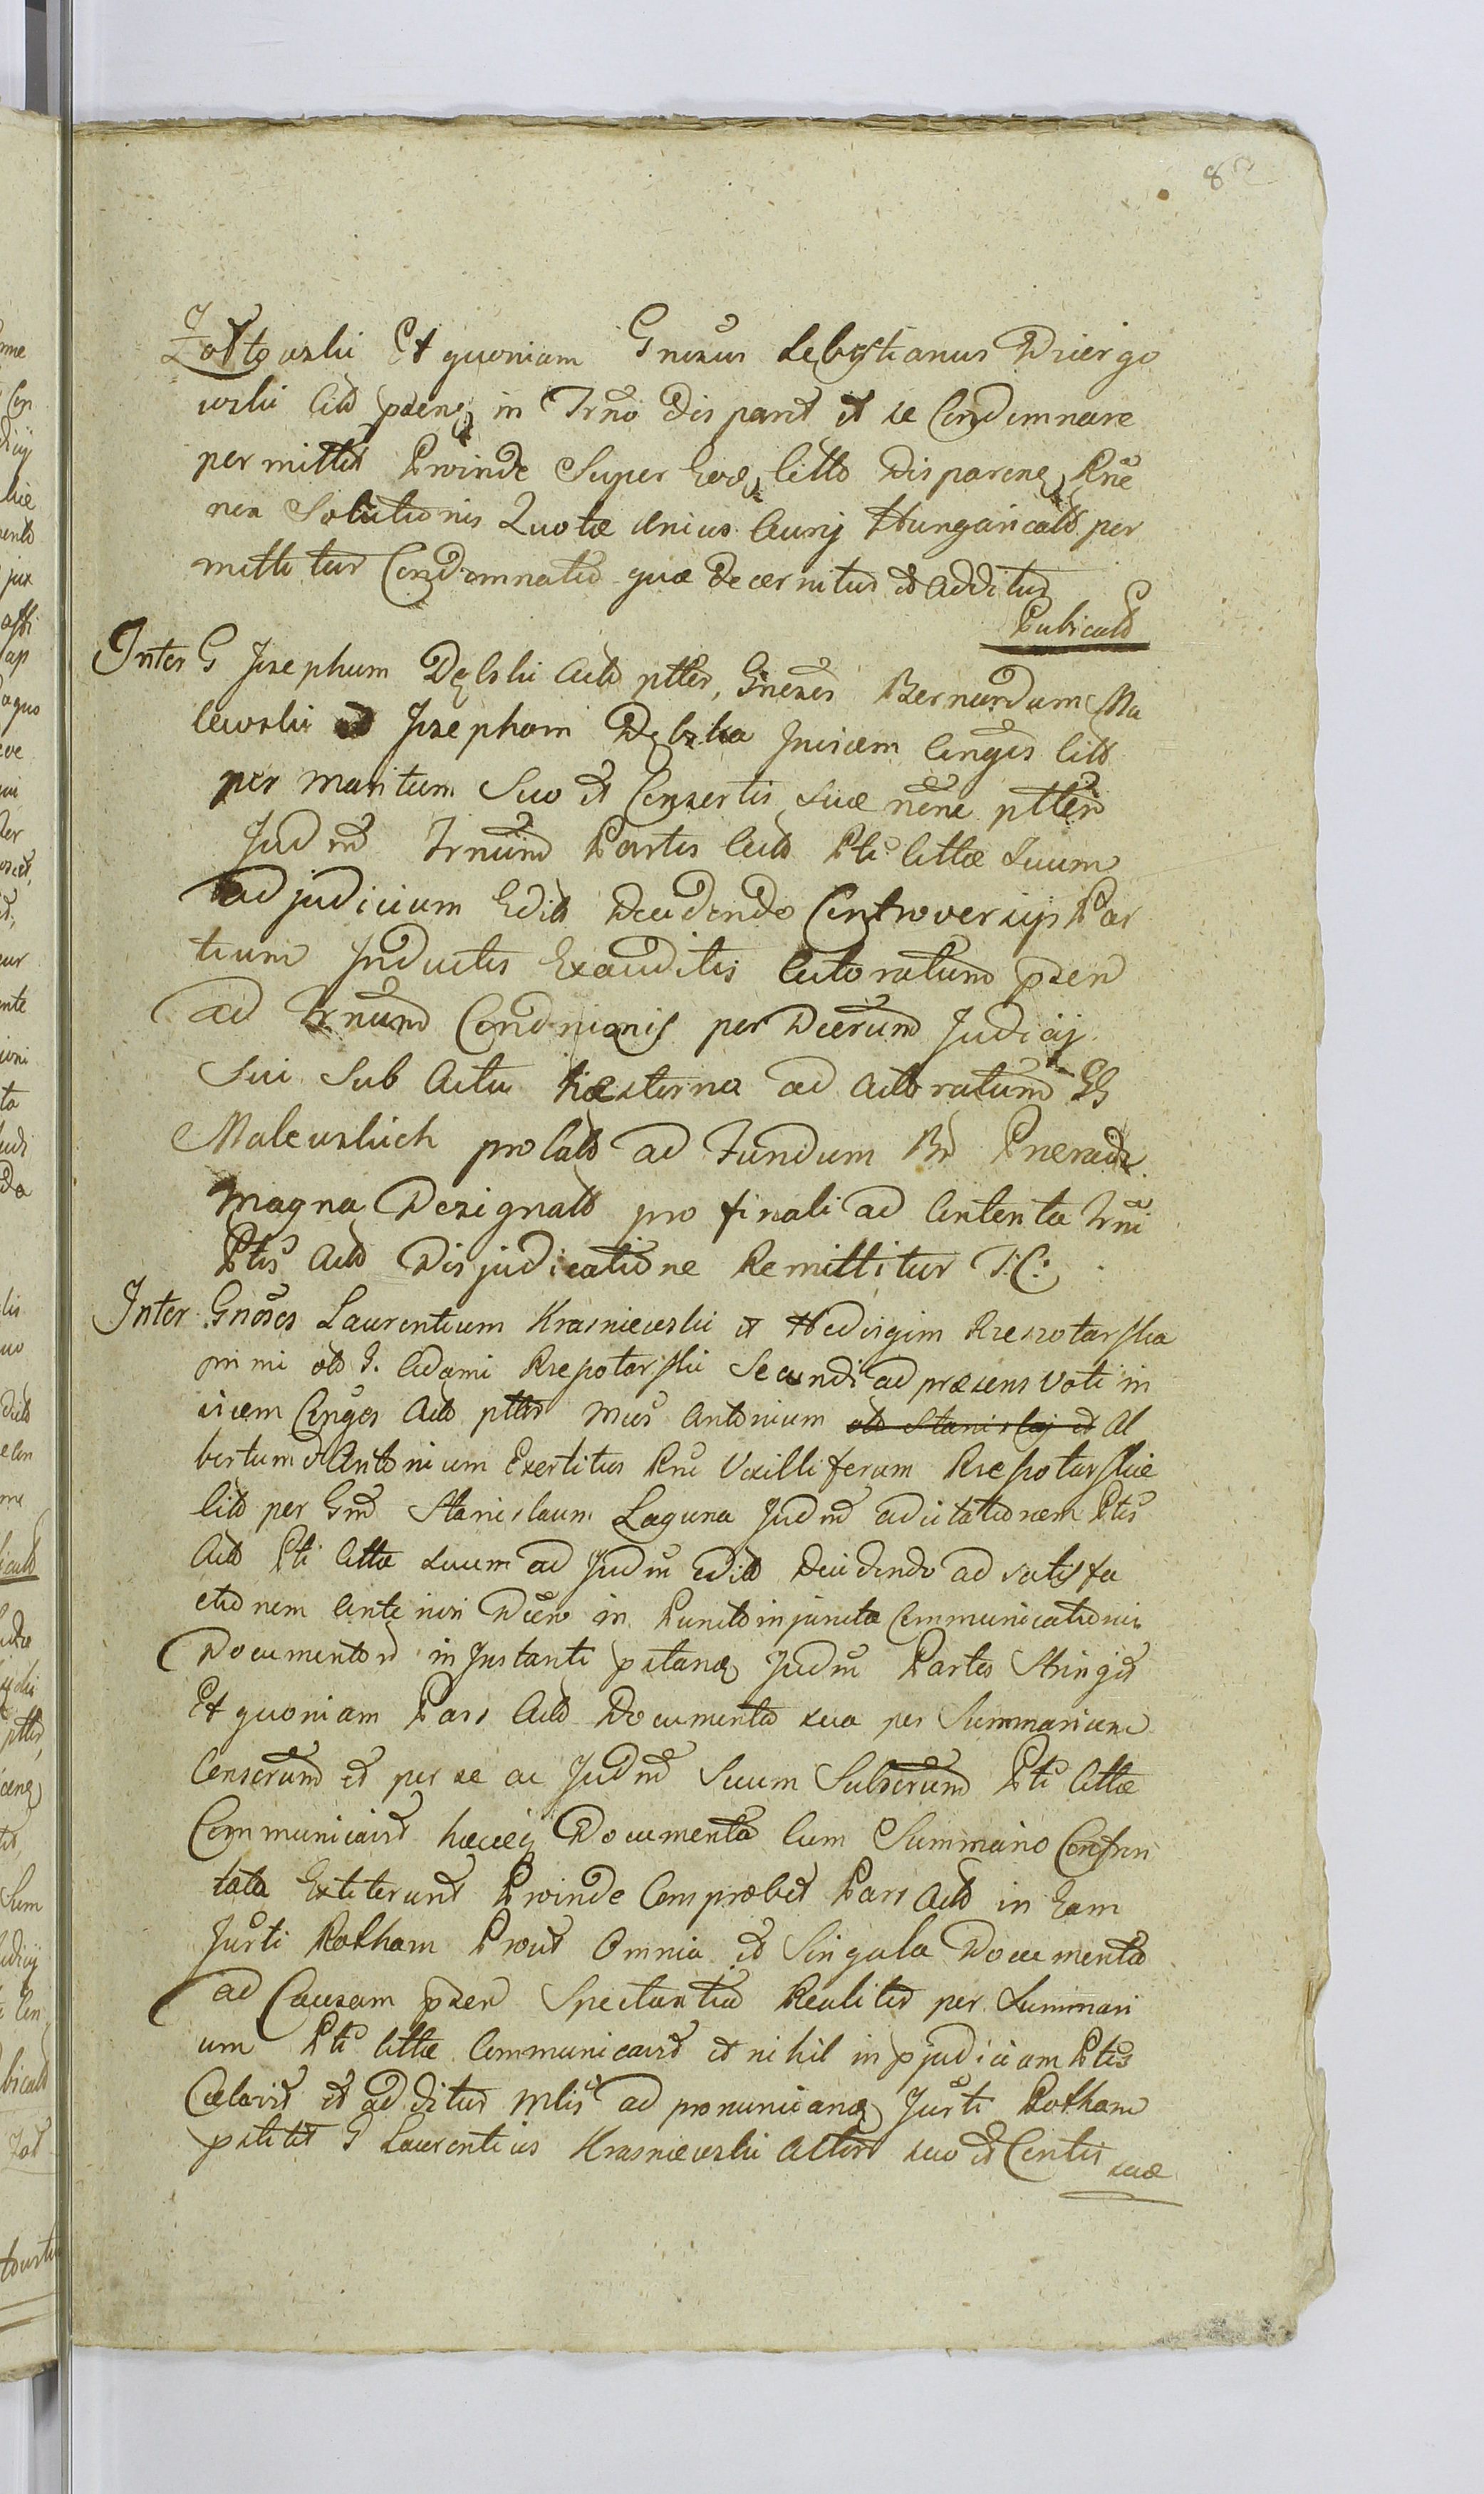 82
Zołtowski Et quoniam Gnersus Sebastianus Dziergo
wski Citus psens in Trno dis paret et se Condemnare
permittit Proinde Super Eode Citto Disparene, Rne
non Solutionis Quotæ Unius Aurij Hungaricalis per
mittitur Condemnatio quæ decernitur et additur
Publicato
Inter G Josephum Dębski Actor ptter, Gnesos Bernardum Ma
lewski et Josepham Dębska Invicem Conges Citt
per Maritum Suo et Consortis Suæ nene ptter
Judm Trnum Partis Act Pti Cittæ Suum
ad judicium Edit Decidendo Controversijs Par
tium Inductis Exauditis Actoratum psen
ad Trnum Condnionis per Dcerum Judicij
Sui Sub Actu hæsterna ad Actoratum GG
Malewskich prolato ad Fundum Bo Pneradz
Magna Designato pro finali ad Contenta Trni
Ptis Act Disjudicatione Remittitur T: C:
Inter Gnosos Laurentium Krasniewski et Hedvigim Rzeszotarska
primi olo G. Adami Rzeszotarski Secundi ad præsens Voti in
vicem Conges Act ptter Mcos Antonium olo Stanislai et Al
bertum et Antonium Exercitus Rni Vexilliferum Rzeszotarskie
Cito per Gnd Stanislaum Laguna Judm ad citationem Ptis
Act Pti Cittæ Suum ad Judm edit Decidendo ad satisfa
ctionem Anteriori Dcero in Puncto injuncta Communicationis
Documentor in Instanti pstana Judm Partes Stringit
Et quoniam Pars Act Documenta sua per Summarium
Conscrum et per se ac Judm Suum Subscrum Pti Cittæ
Communicavit hæceq Documenta Cum Summario Confron
tata Extiterunt Proinde Comprobet Pars Act in Eam
Jurti Rotham Prout Omnia et Singula Documenta
ad Causam psen Spectantia Realiter per Summari
um Pti Cittæ Communicavit et nihil in pjudicium Ptis
Celavit et additur Mlis ad pronunciand Jurti Rotham
pstitit G Laurentius Krasniewski Actor suo et Contis suæ